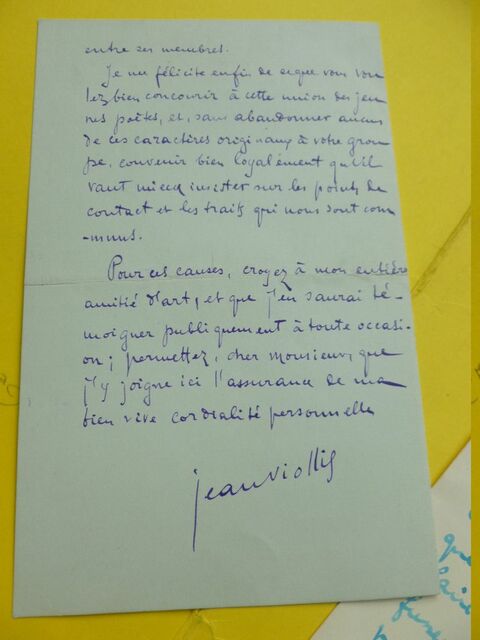 entre ses membres.
Je me félicite enfin de ce que vous vou
lez bien concourir à cette union des jeu
nes poètes, et, sans abandonner aucun
de ces caractères originaux à votre grou
pe, convenir bien loyalement qu'il
vaut mieux insister sur les points de
contact et les traits qui nous sont com
-muns.
Pour ces causes, croyez à mon entière
amitié d'art, et que j'en saurai té-
moigner publiquement à toute occasi-
on; permettez, cher monsieur, que
j'y joigne ici l'assurance de ma
bien vive cordialité personnelle
jean viollis
que